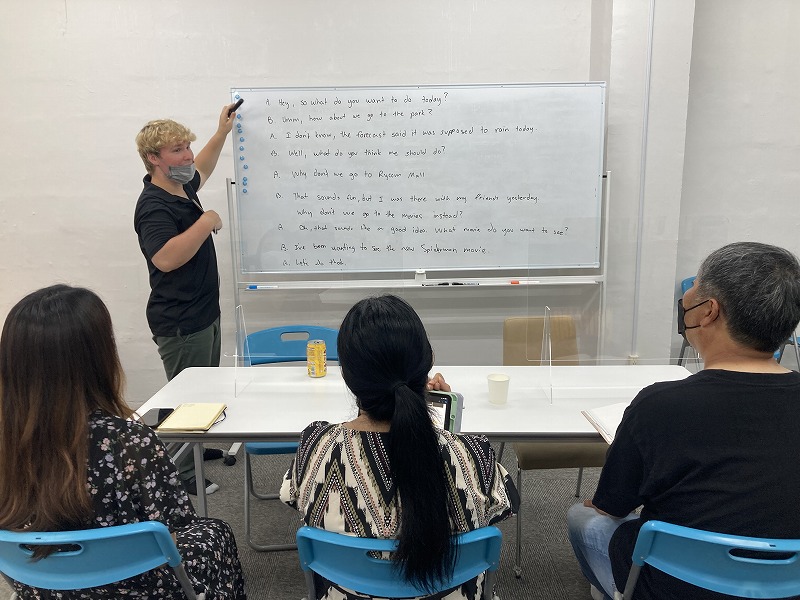 A. Hey, so what do you want to do today?
B. Umm, how about we go to the park?
A. I don't know, the forecast said it was supposed to rain today.
B. Well, what do you think we should do?
A. Why don't we go to Rycom Mall
B. That sounds fun, but I was there with my friends yesterday.
Why don't we go to the movies instead?
A. Oh, that sounds like a good idea. What movie do you want to see?
B. I've been wanting to see the new Spiderman movie.
A. Let's do that.